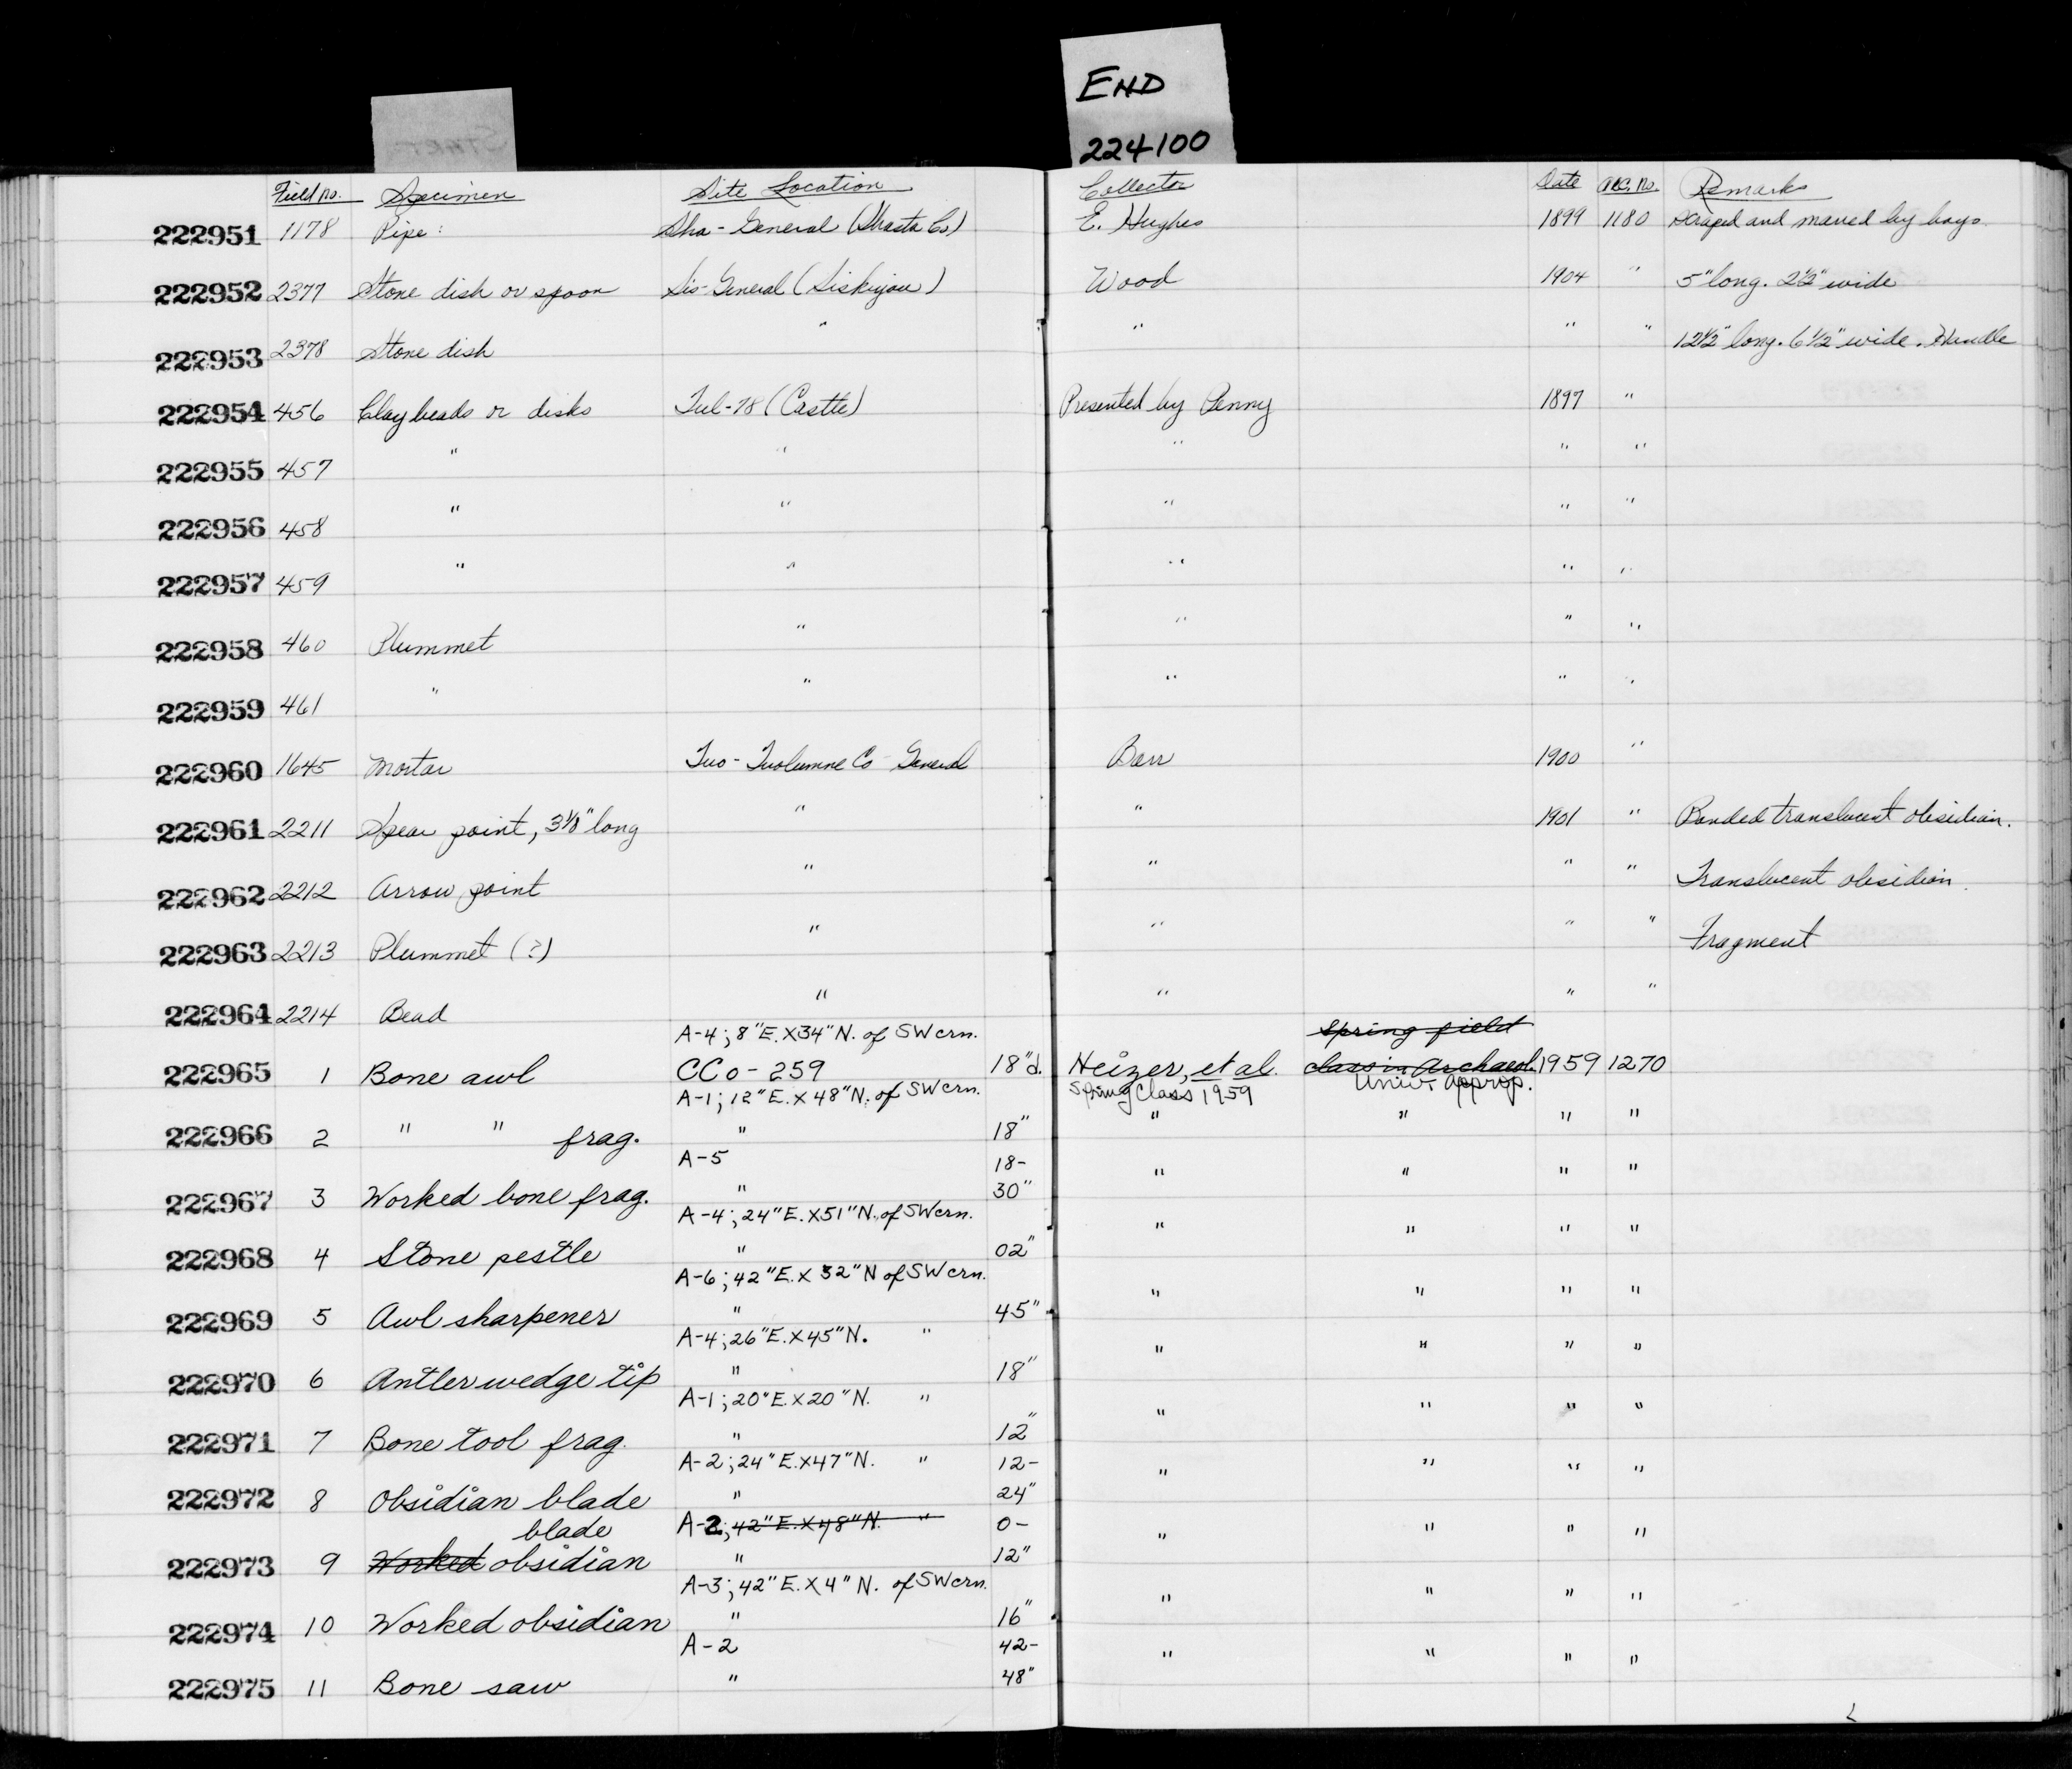 END
224100
START
Field no. Specimen Site Location Collector Date acc. no. Remarks
222951 1178 Pipe: Sha - General (Shasta Co) E. Hughes 1899 1180 Scraped and marred by boys.
222952 2377 Stone dish or spoon Sis-General (Siskiyou) Wood 1904 " 5" long. 2½" wide
222953 2378 Stone dish " " " " 12½" long. 6½" wide. Handle
222954 456 Clay beads or disks Tul-18 (Castle) Presented by Penny 1897 "
222955 457 " " " " "
222956 458 " " " " "
222957 459 " " " " "
222958 460 Plummet " " " "
222959 461 " " " " "
222960 1645 Mortar Tuo - Tuolumne Co General Barr 1900 "
222961 2211 Spear point, 3⅛" long " " 1901 " Banded translucent obsidian.
222962 2212 Arrow point " " " " Translucent obsidian.
222963 2213 Plummet (?) " " " " Fragment
222964 2214 Bead " " " "
A-4; 8" E. X 34" N. of SW crn. Spring field
222965 1 Bone awl CCo - 259 18"d. Heizer, et al. class in Archaeol. 1959 1270
A-1; 12" E. X 48" N. of SW crn. Spring Class 1959 Univ. Approp.
222966 2 " " frag. " 18" " " " "
A-5 18-
222967 3 Worked bone frag. " 30" " " " "
A-4; 24" E. X 51" N. of SW crn.
222968 4 Stone pestle " 02" " " " "
A-6; 42" E. X 32" N of SW crn.
222969 5 Awl sharpener " 45" " " " "
A-4; 26" E. X 45" N. "
222970 6 Antler wedge tip " 18" " " " "
A-1; 20" E. X 20" N. "
222971 7 Bone tool frag. " 12" " " " "
A-2; 24" E. X 47" N. " 12-
222972 8 Obsidian blade " 24" " " " "
blade A-2; 42" E. X 48" N. " 0-
222973 9 Worked obsidian " 12" " " " "
A-3; 42" E. X 4" N. of SW crn.
222974 10 Worked obsidian " 16" " " " "
A-2 42-
222975 11 Bone saw " 48" " " " "